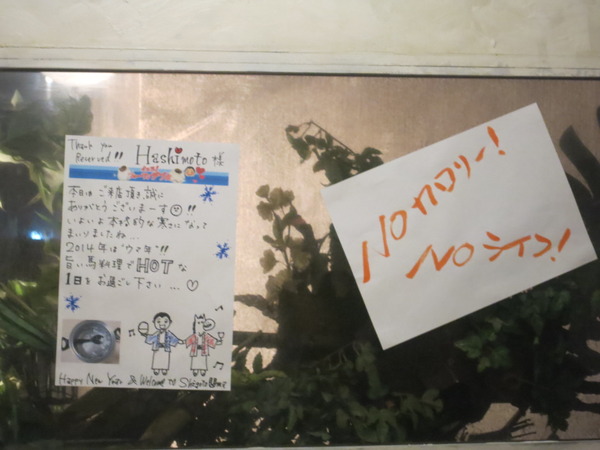 Thank you
Reserved!! Hashimoto 様
本日は ご来店頂き誠に
ありがとうございまーす!!
いよいよ本格的な寒さになって
まいりましたね…
2014年は"ウマ年"!!
旨い馬料理でHOTな
1日をお過ごし下さい…♡
Happy New Year & Welcome to
NO カロリー!
NO ライフ!